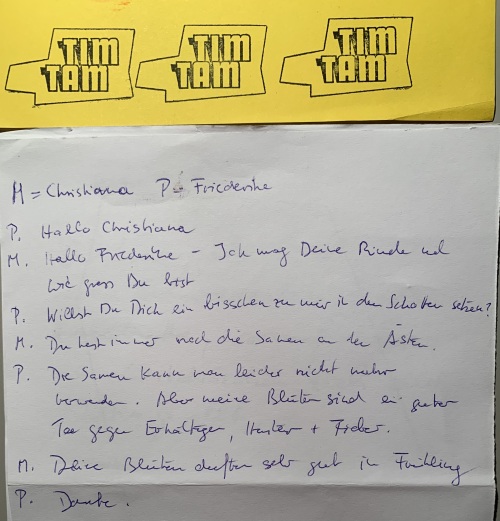 TIM TAM TIM TAM TIM TAM
M = Christiana P = Friederike
P. Hallo Christiana
M. Hallo Friederike - Ich mag Deine Rinde und
wie gross Du bist
P. Willst Du Dich ein bisschen zu mir in den Schatten setzen?
M. Du hast immer noch die Samen an den Ästen.
P. Die Samen kann man leider nicht mehr
verwenden. Aber meine Blüten sind ein guter
Tee gegen Erkältungen, Husten + Fieber.
M. Deine Blüten duften sehr gut im Frühling
P. Danke.